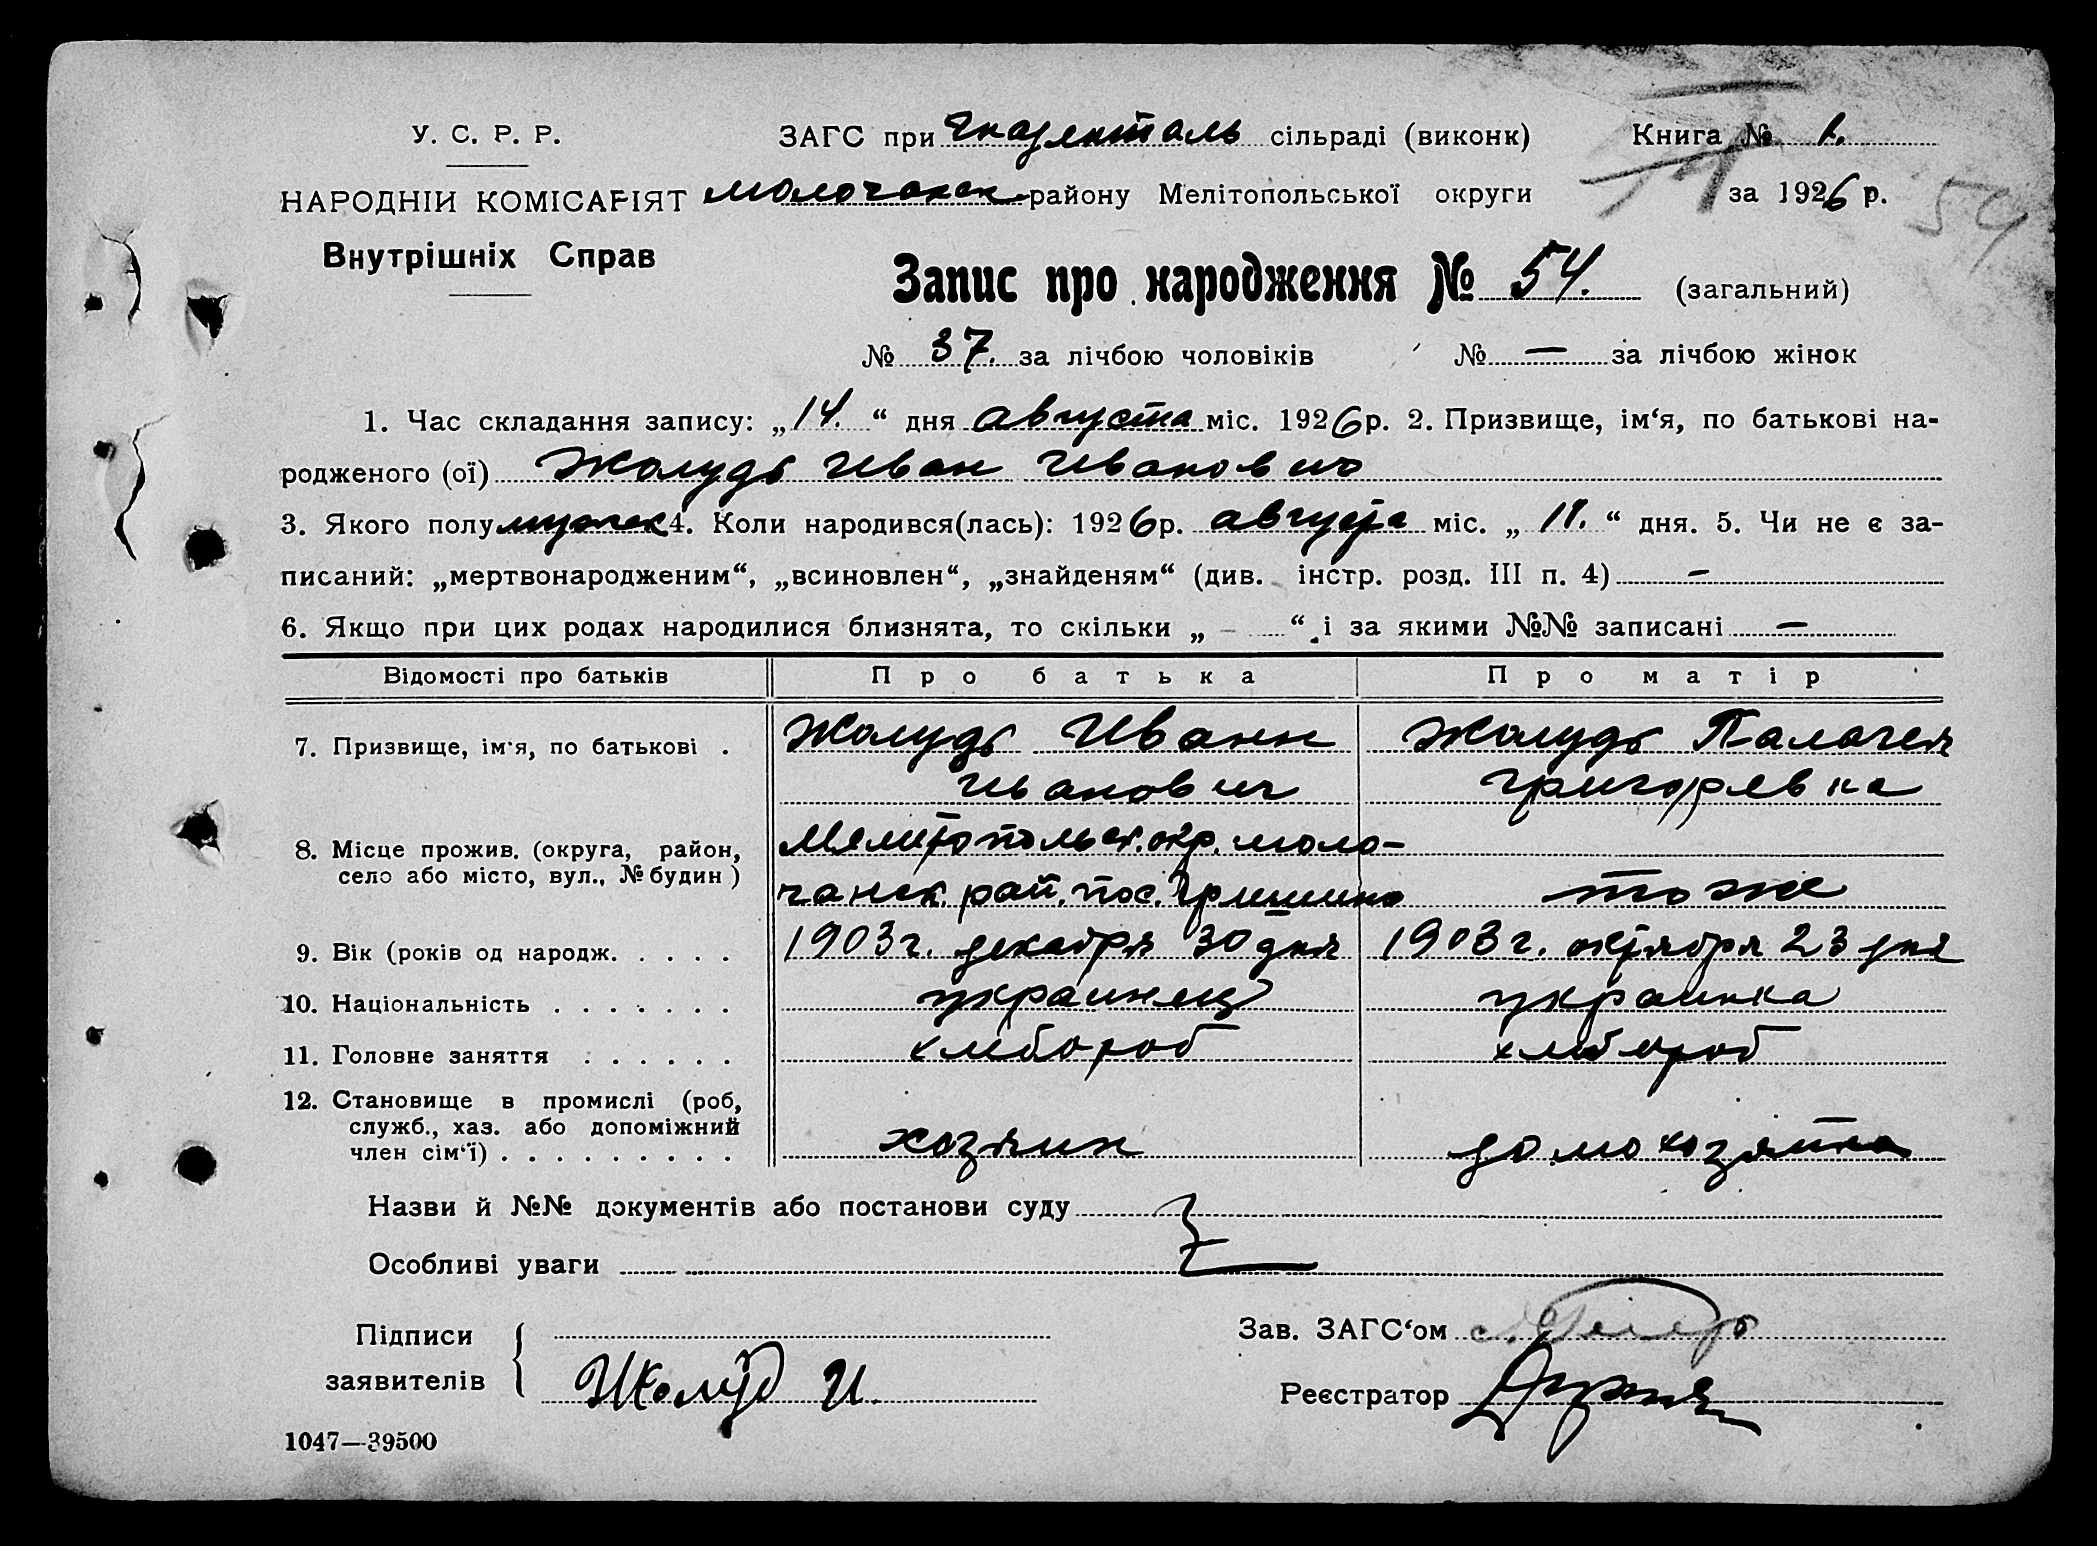 У. С. Р. Р.
ЗАГС при Гнаденталь сільраді (виконк)
Книга № 1.
НАРОДНІЙ КОМІСАРІЯТ
Молочанск. району Мелітопольської округи
за 1926 р.
54
Внутрішніх Справ
Запис про народження № 54. (загальний)
№ 37. за лічбою чоловіків № — за лічбою жінок
1. Час складання запису: „14.“ дня августа міс. 1926 р. 2. Призвище, ім‘я, по батькові на-
родженого (ої) Жолудь Иван Иванович
3. Якого полу мужск 4. Коли народився(лась): 1926 р. августа міс. „11.“ дня. 5. Чи не є за-
писаний: „мертвонародженим“, „всиновлен“, „знайденям“ (див. інстр. розд. III п. 4) —
6. Якщо при цих родах народилися близнята, то скільки „ – “ і за якими №№ записані —
Відомості про батьків Про батька Про матір
7. Призвище, ім‘я, по батькові . Жолудь Иванн Жолудь Палагея
Иванович Григоревна
8. Місце прожив. (округа, район, Мелитопольск. окр. моло-
село або місто, вул., № будин) чанск. рай. пос. Гришино тоже
9. Вік (років од народж. . . . . 1903 г. декабря 30 дня 1903 г. октября 23 дня
10. Національність . . . . . . . украинец украинка
11. Головне заняття . . . . . . хлібороб хлібороб
12. Становище в промислі (роб,
служб., хаз. або допоміжний
член сім‘ї) . . . . . . . . . хозяин домохозяйка
Назви й №№ документів або постанови суду
Особливі уваги
Підписи
заявителів Жолудь И.
Зав. ЗАГС‘ом
Реєстратор
1047—39500